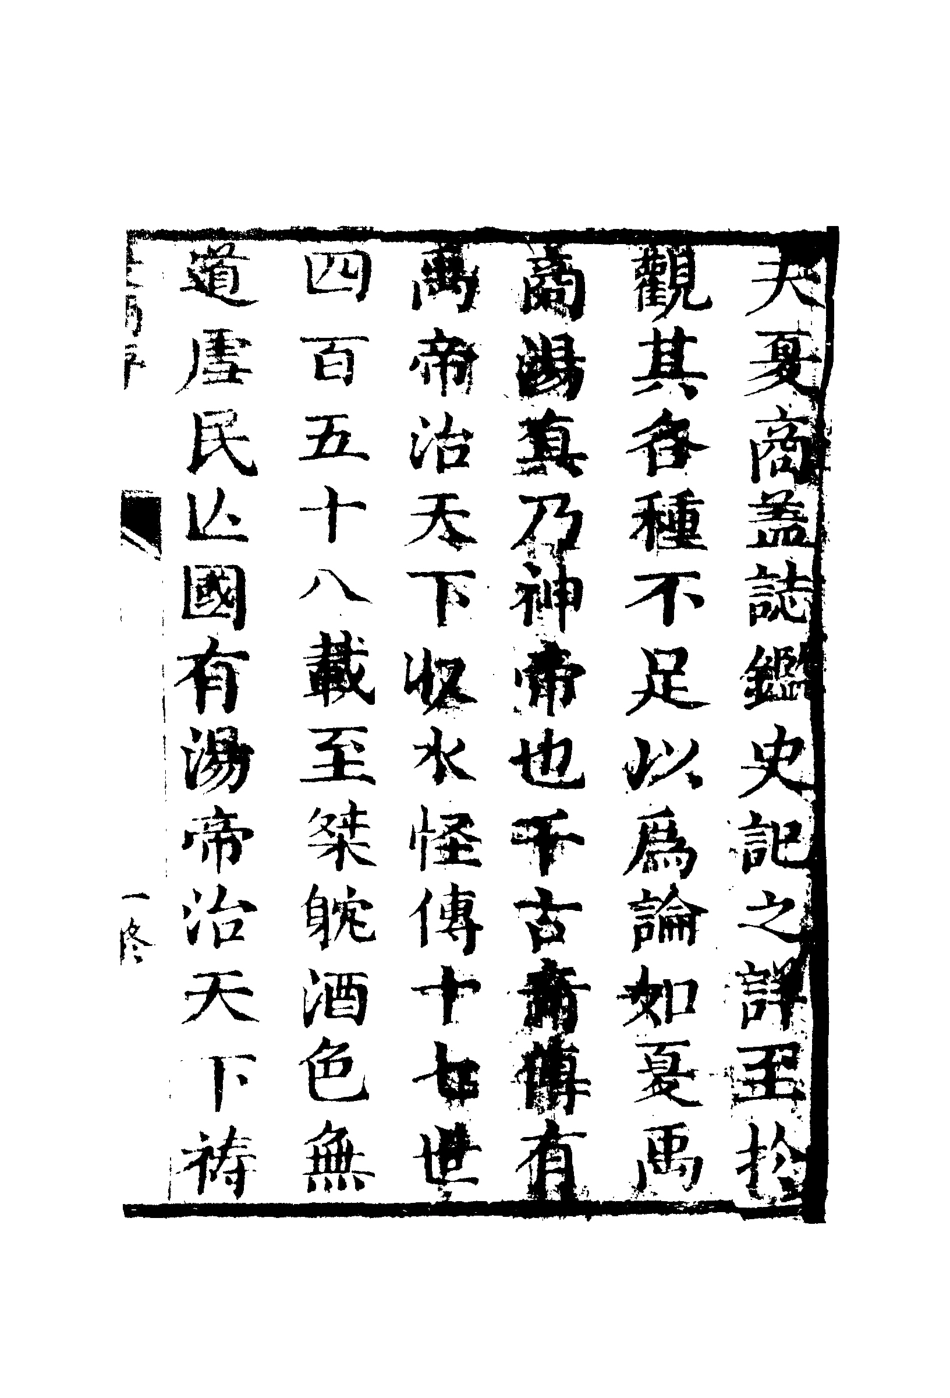 夫夏商蓋誌鑑史記之詳至於
觀其各種不足以爲論如夏禹
商湯真乃神帝也千古商傳有
禹帝治天下収水怪傳十七世
四百五十八載至桀躭酒色無
道虐民亾國有湯帝治天下祷
一修